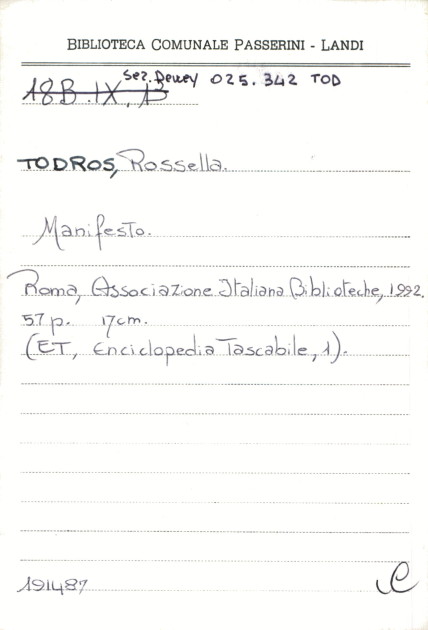 BIBLIOTECA COMUNALE PASSERINI - LANDI
Sez. Dewey 025.342 TOD
18B.IX.13
TODROS, Rossella.
Manifesto.
Roma, Associazione Italiana Biblioteche, 1992.
57 p. 17 cm.
(ET, Enciclopedia Tascabile, 1).
191487